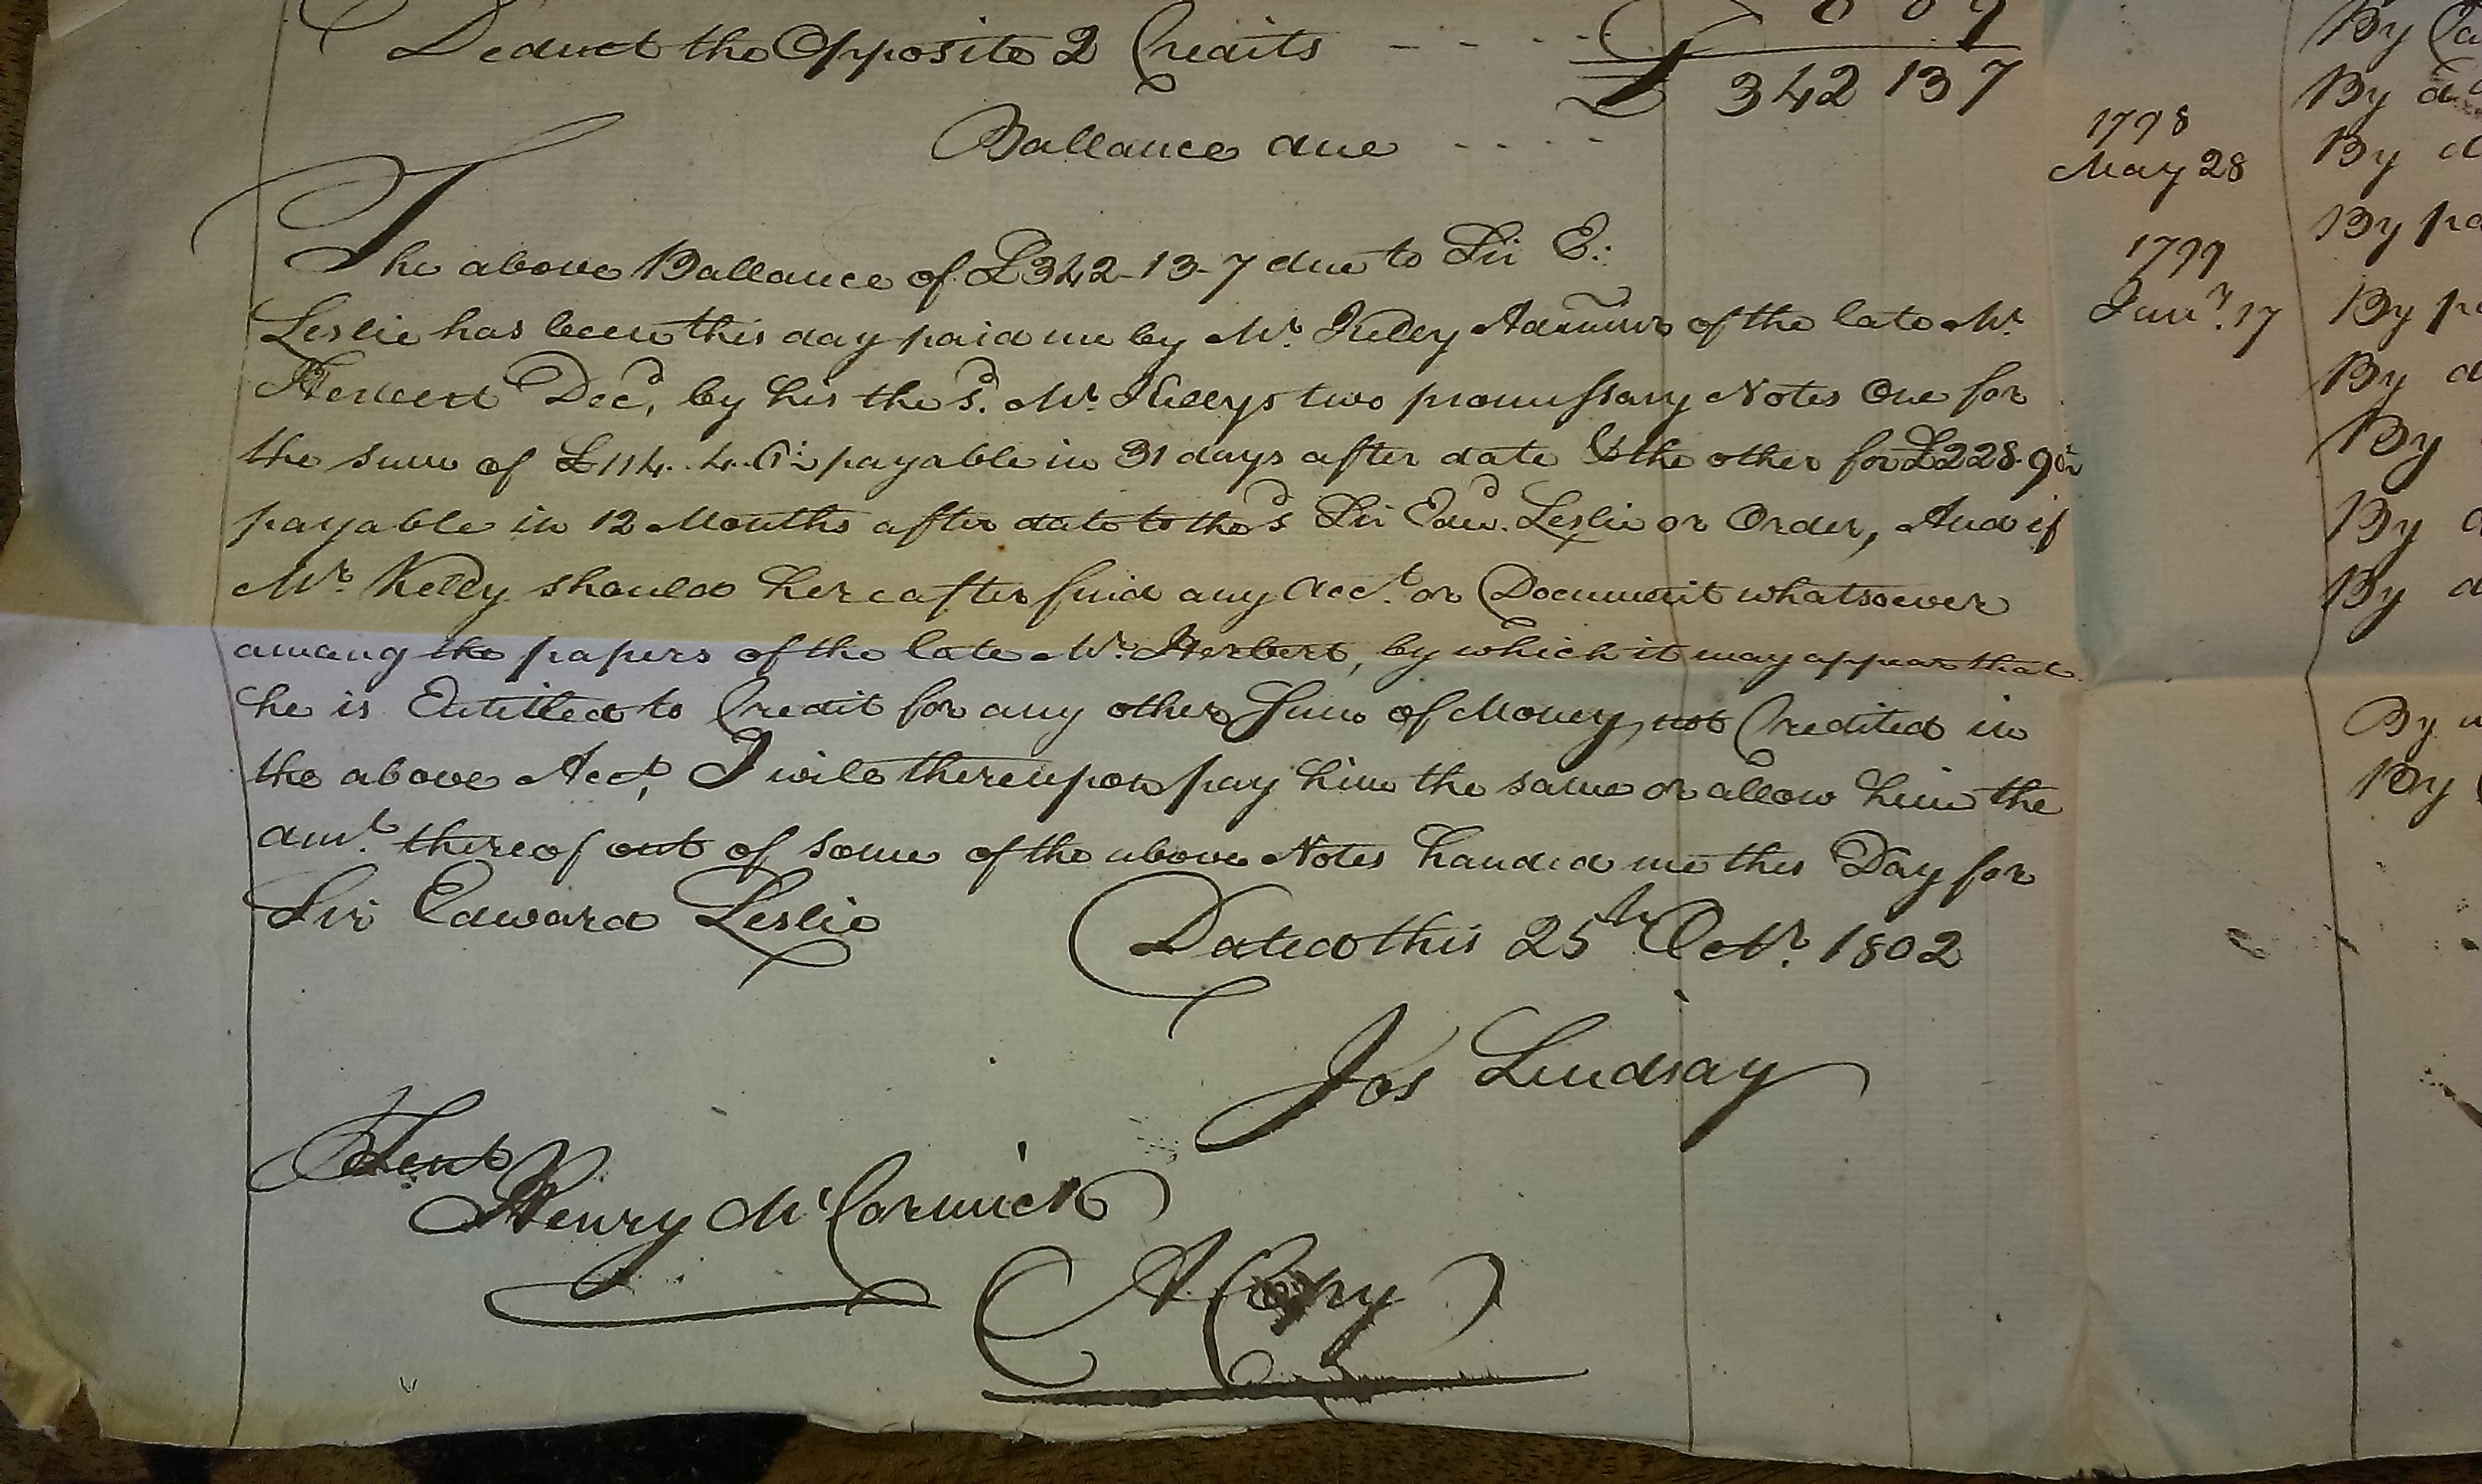 Deduct the Opposite 2 Credits - - - -
£ 342 13 7
Ballance due - - - -
The above Ballance of £342-13-7 due to Sir E:
Leslie has been this day paid me by Mr. Kelly Admr. of the late Mr
Herbert Decd. by his the sd. Mr. Kellys two promissary Notes One for
the sum of £114.. 4.. 6½ payable in 31 days after date & the other for £228.9
payable in 12 Months after date to the sd Sir Edwd. Leslie or Order, And if
Mr. Kelly should hereafter find any Acct. or Document whatsoever
among the papers of the late Mr. Herbert, by which it may appear that
he is Entitled to Credit for any other Sum of Money not Credited in
the above Acct, I will thereupon pay him the same or allow him the
amt. thereof out of some of the above Notes handed me this Day for
Sir Edward Leslie
Dated this 25th Octr. 1802
Jos Lindsay
Henry McCormick
A Copy
1798
May 28
1799
Jany. 17
By
By
By
By
By
By
By
By
By
By
By